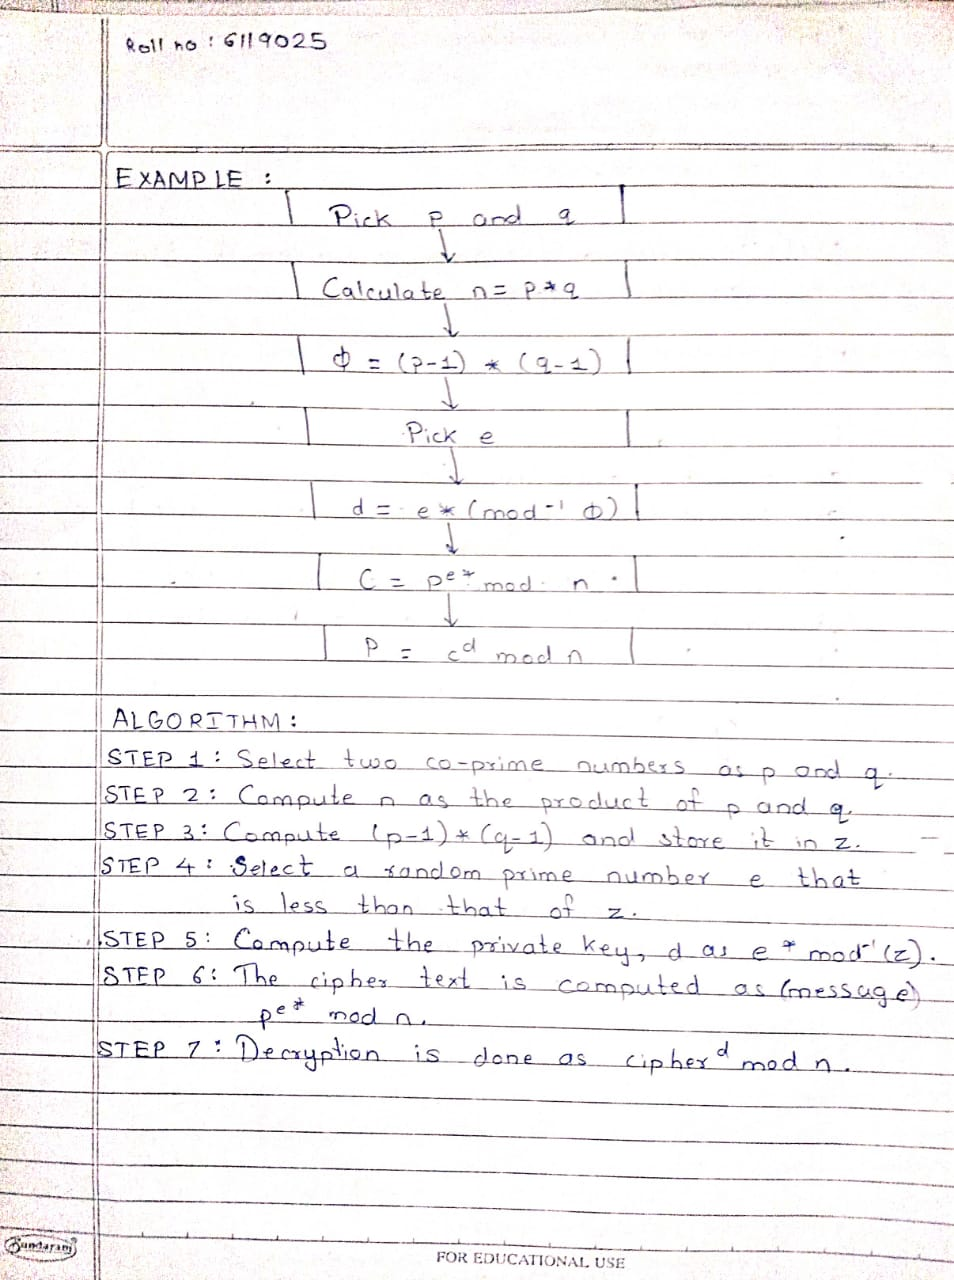 Roll no : 6119025
EXAMPLE :
Pick p and q
Calculate n = p * q
ϕ = (p-1) * (q-1)
Pick e
d = e * (mod⁻¹ ϕ)
C = pᵉ* mod n .
P = cᵈ mod n
ALGORITHM :
STEP 1 : Select two co-prime numbers as p and q.
STEP 2 : Compute n as the product of p and q.
STEP 3 : Compute (p-1) * (q-1) and store it in z.
STEP 4 : Select a random prime number e that
is less than that of z.
STEP 5 : Compute the private key, d as e * mod⁻¹ (z).
STEP 6 : The cipher text is computed as (message)
pᵉ* mod n.
STEP 7 : Decryption is done as cipherᵈ mod n.
Sundaram
FOR EDUCATIONAL USE